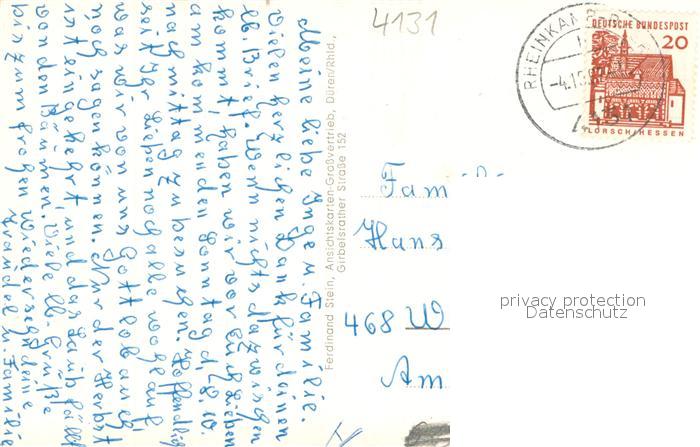 4131
Meine liebe Inge u. Familie.
Vielen herzlichen Dank für deinen
lb. Brief. Wenn nichts dazwischen
kommt, haben wir vor Euch lieben
am kommenden Sonntag d. 8. 10.
nachmittag zu besuchen. Hoffendlich
seit Ihr lieben noch alle wohlauf,
was wir von uns Gottlob auch
noch sagen können. Nur der Herbst
ist eingekehrt und das Laub fällt
von den Bäumen. Viele lb. Grüße
bis zum frohen Wiedersehn deine
u. Familie
Ferdinand Stein, Ansichtskarten-Großvertrieb, Düren/Rhld.,
Girbelsrather Straße 152
RHEINKAMP
-4.10.
DEUTSCHE BUNDESPOST
20
LORSCH/HESSEN
Fam
Hans
468 W
Am
privacy protection
Datenschutz